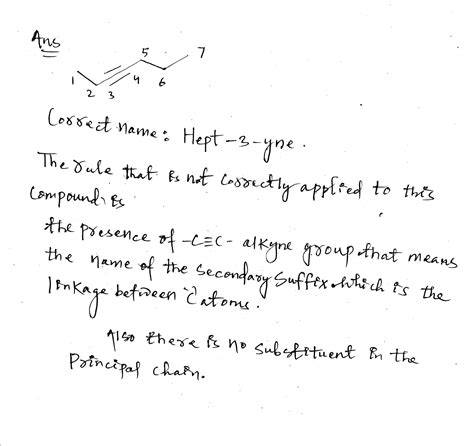 Ans
1 2 3 4 5 6 7
Correct name: Hept-3-yne.
The rule that is not correctly applied to this
Compound is
the presence of -C≡C- alkyne group that means
the name of the secondary suffix which is the
linkage between C atoms.
Also there is no substituent in the
Principal chain.